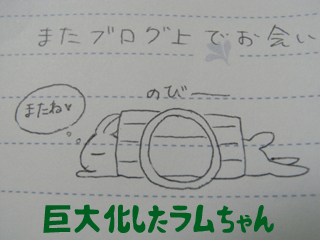 またブログ上でお会い
のびーー
またね♥
巨大化したラムちゃん